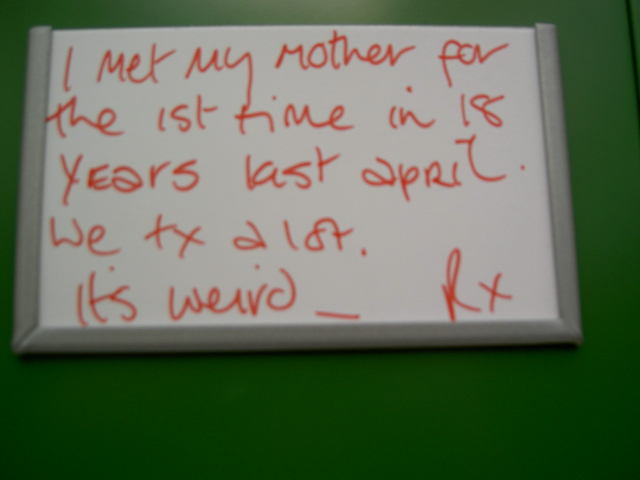 I met my mother for
the 1st time in 18
years last april.
We tx a lot.
It's weird _ Rx